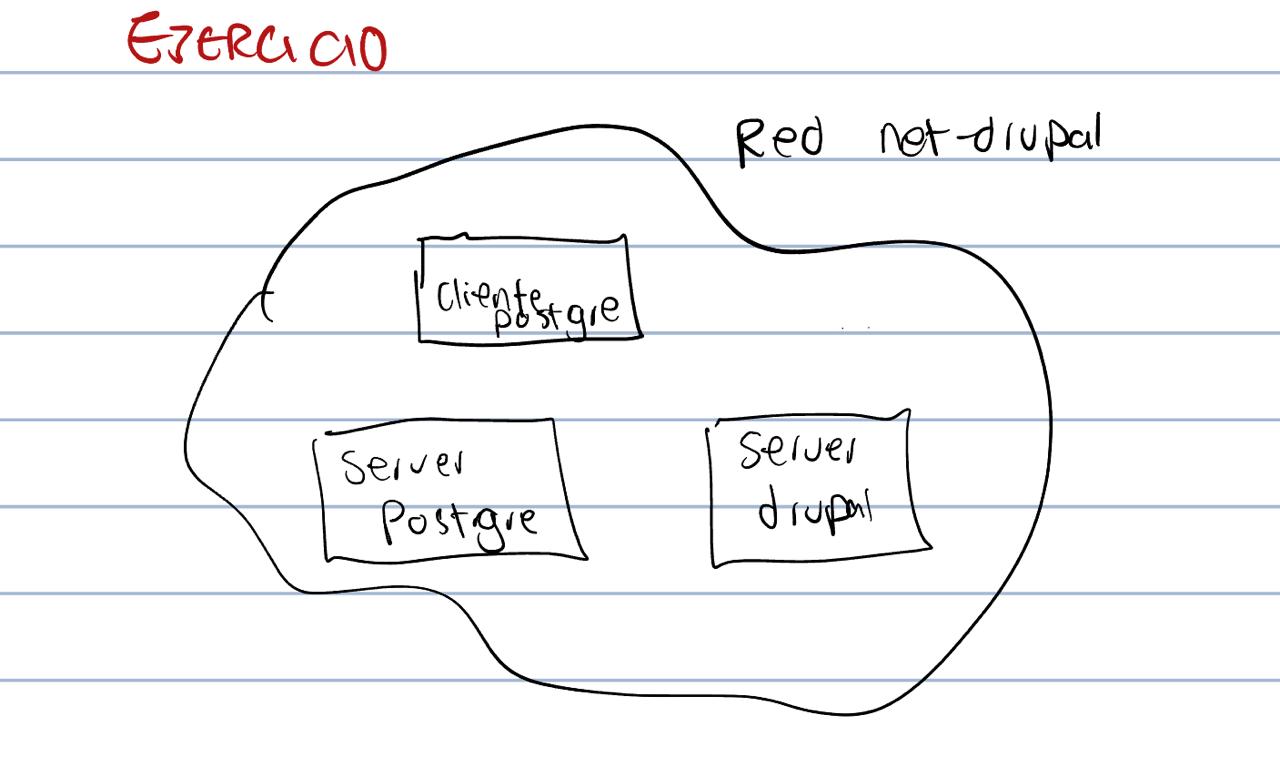 EJERCICIO
Red net-drupal
Cliente
postgre
Server
Postgre
Server
drupal